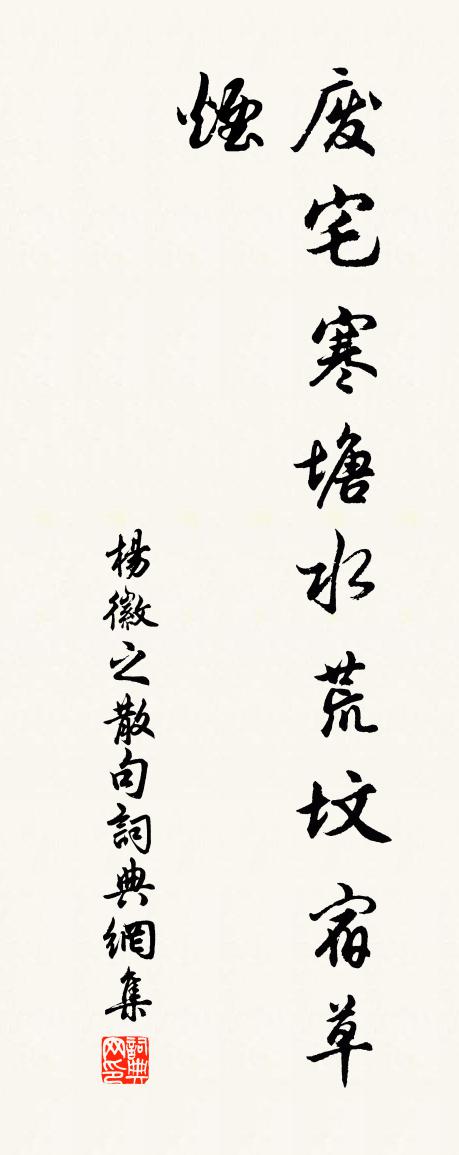 废宅寒塘水荒坟宿草
煙
楊徽之散句詞典網集
詞典网印